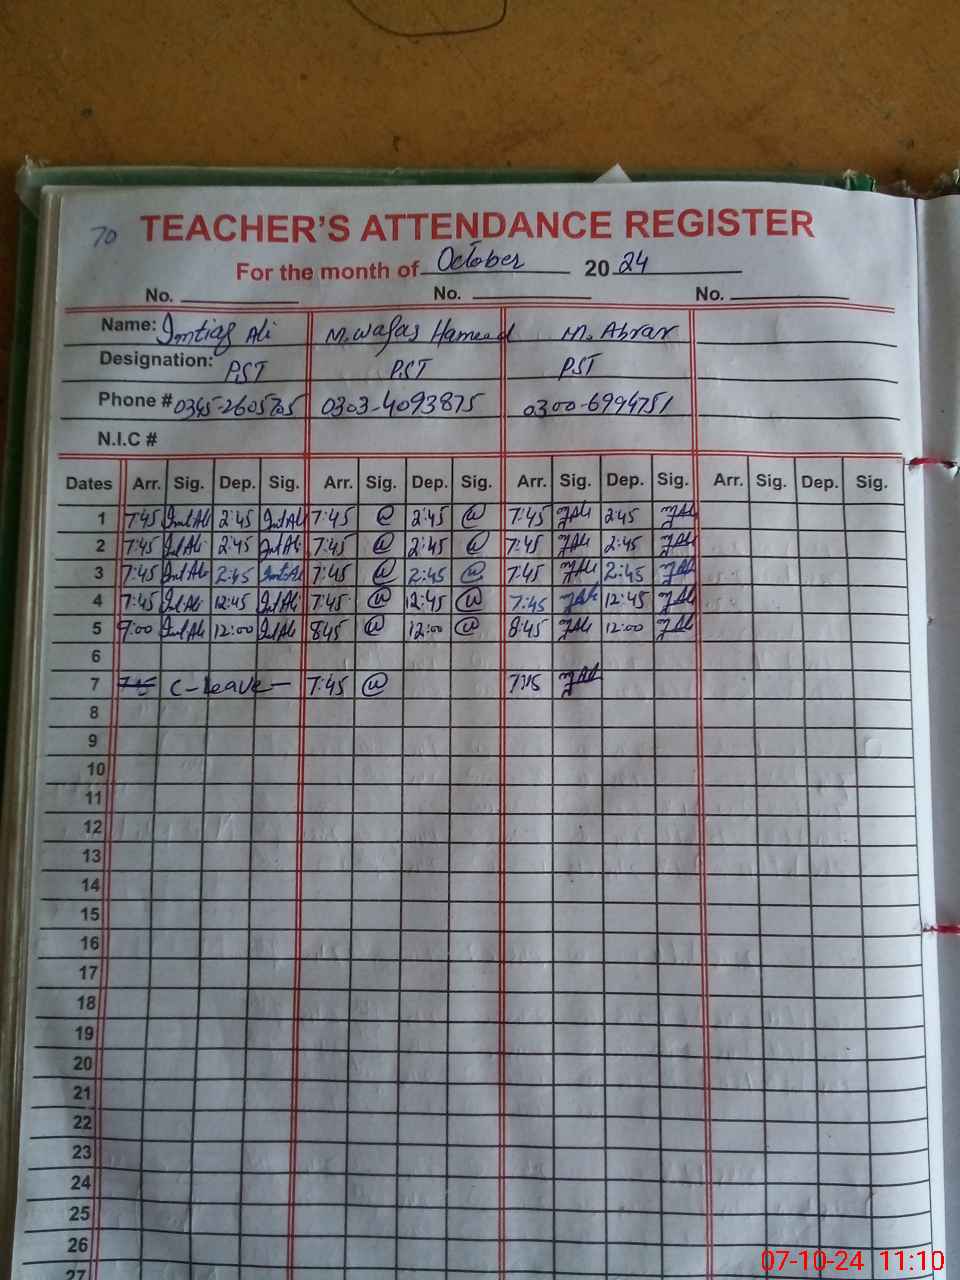 70 TEACHER'S ATTENDANCE REGISTER
For the month of October 2024
No. No. No.
Name: Imtiaz Ali M. Waqas Hameed M. Abrar
Designation: PST PST PST
Phone # 0345-2605705 0303-4093875 0300-6994751
N.I.C #
Dates Arr. Sig. Dep. Sig. Arr. Sig. Dep. Sig. Arr. Sig. Dep. Sig. Arr. Sig. Dep. Sig.
1 7:45 2:45 7:45 2:45 7:45 2:45
2 7:45 2:45 7:45 2:45 7:45 2:45
3 7:45 2:45 7:45 2:45 7:45 2:45
4 7:45 12:45 7:45 12:45 7:45 12:45
5 9:00 12:00 8:45 12:00 8:45 12:00
6
7 C-leave 7:45 7:45
8
9
10
11
12
13
14
15
16
17
18
19
20
21
22
23
24
25
26
27
07-10-24 11:10